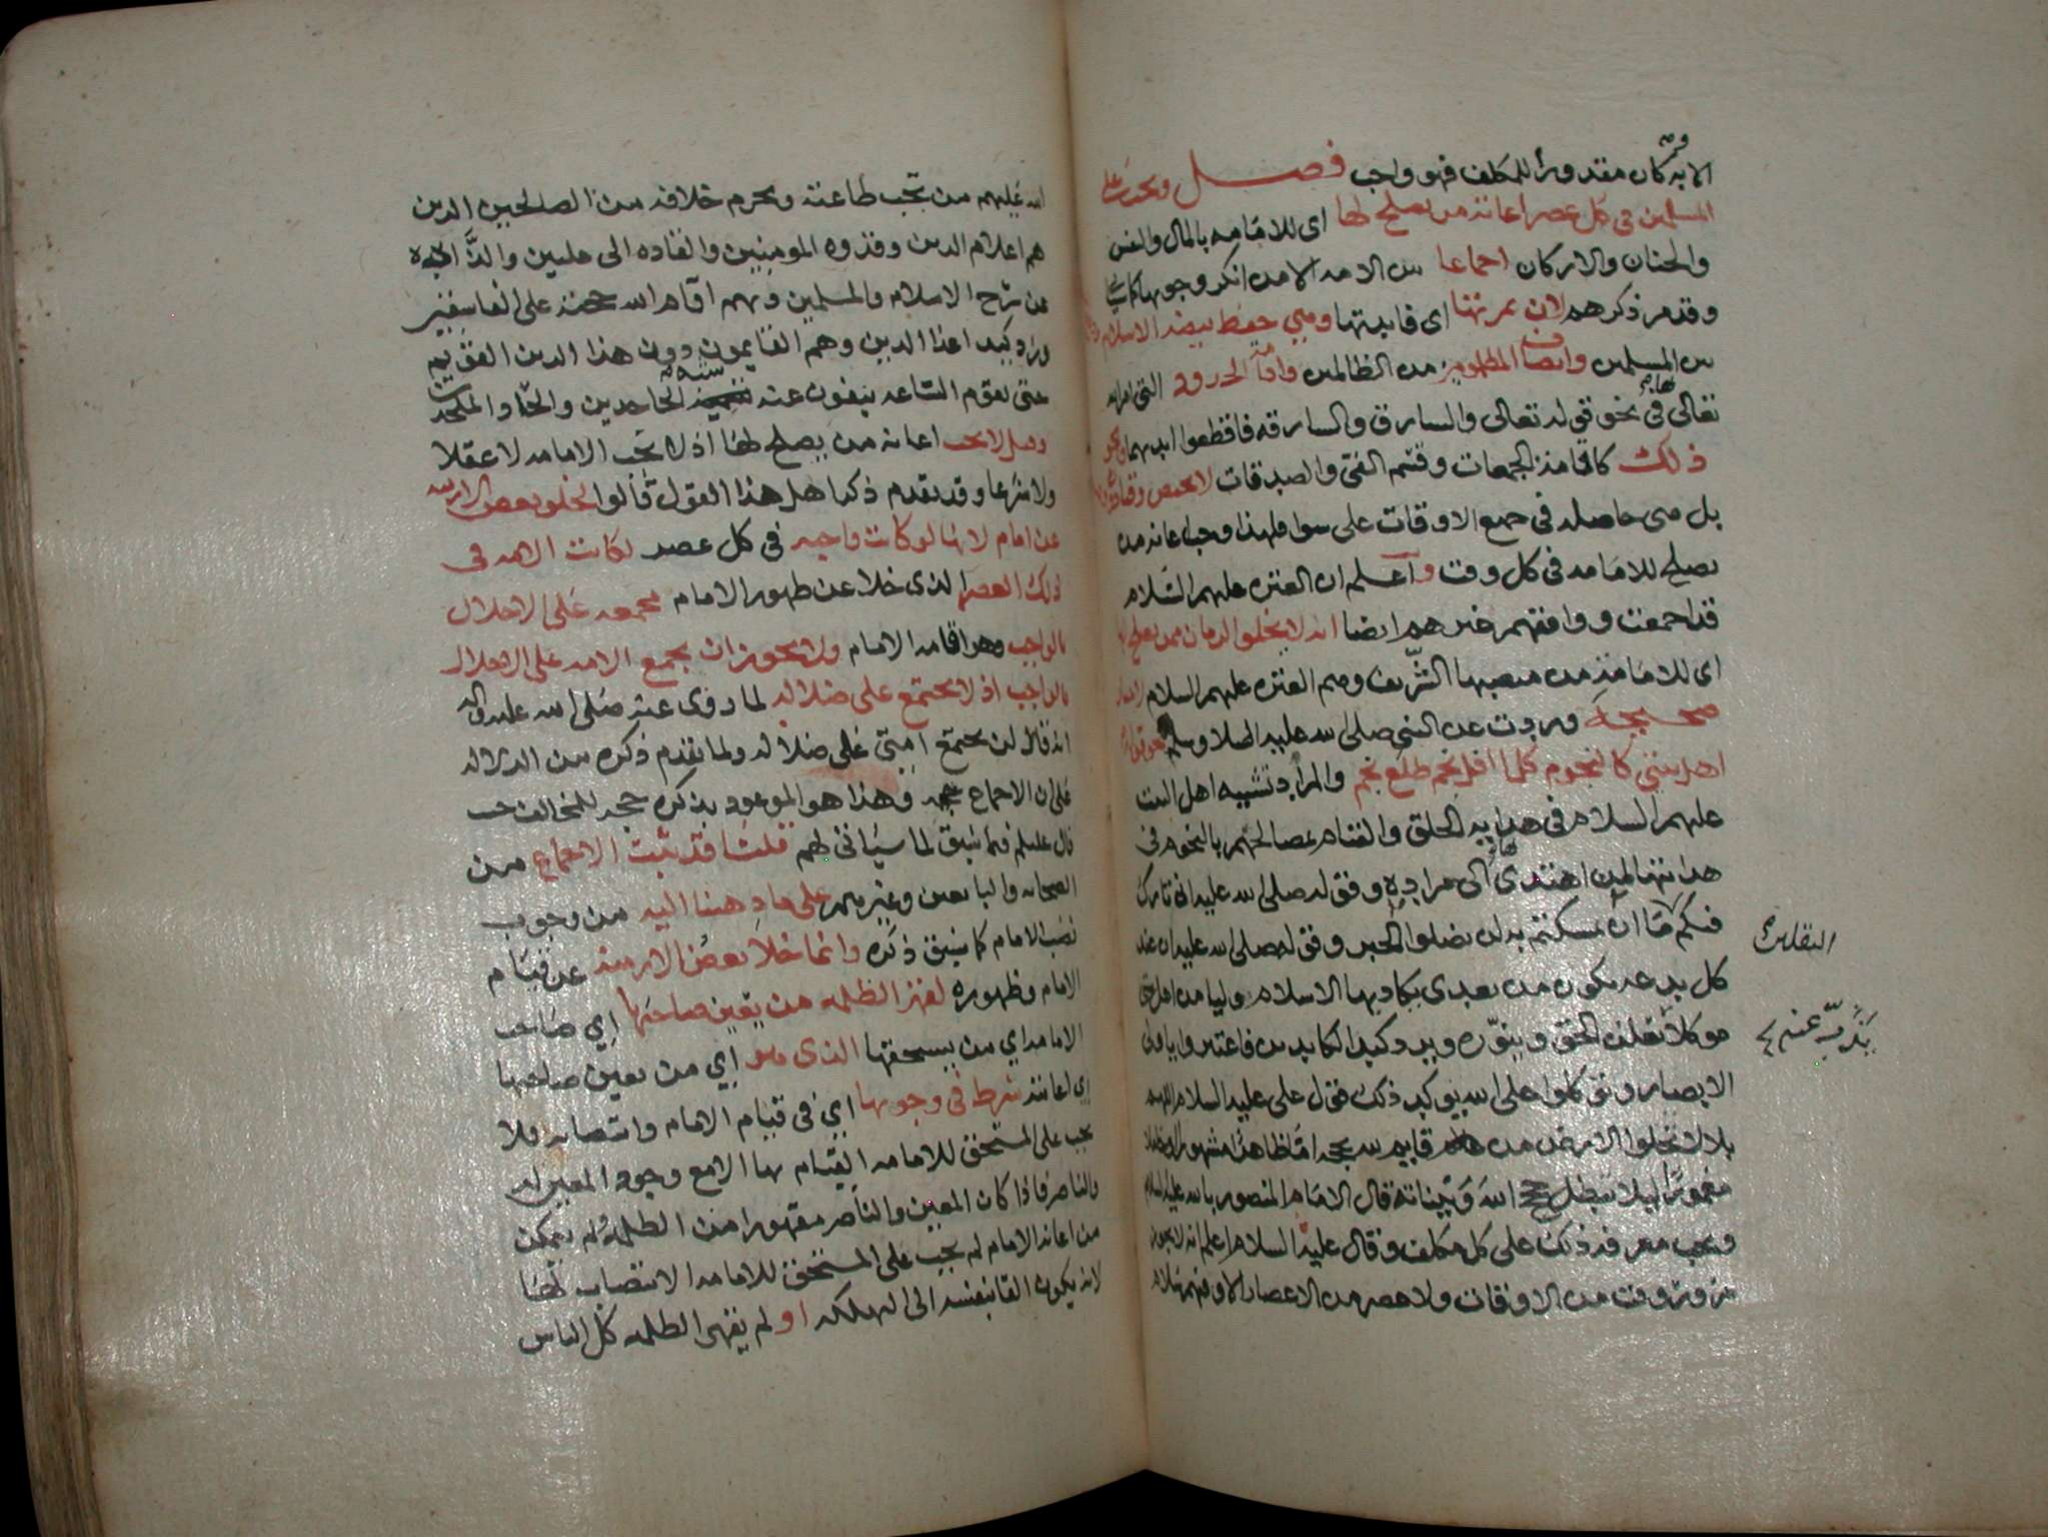 الا به وكان مقدورا للمكلف فهو واجب فصل ويجب على
المسلمين في كل عصر اعانة من يصلح لها اي للامامه بالمال والنفس
والجنان والاركان اجماعا من الامه الا من انكر وجوبها كما سياتي
وقد مر ذكرهم لان ثمرتها اي فايدتها وهي حفظ بيضة الاسلام
من المسلمين وانصاف المظلومين من الظالمين واقامة الحدود التي امر الله
تعالى بها في نحو قوله تعالى والسارق والسارقه فاقطعوا ايديهما ونحو
ذلك كاقامة الجمعات وقسم الفي والصدقات لا يختص وقتا دون
بل هي حاصله في جميع الاوقات على سوا فلهذا وجب اعانه من
يصلح للامامه في كل وقت واعلم ان العتره عليهم السلام
قد اجمعت ووافقهم غيرهم ايضا انه لا يخلوا الزمان ممن يصلح لها
اي للامامة من منصبها الشريف وهم العتره عليهم السلام
صحيحة وردت عن النبي صلى الله عليه والصلاه وسلم نحو قوله
اهل بيتي كالنجوم كلما افل نجم طلع نجم والمراد تشبيه اهل البيت
عليهم السلام في هدايه الخلق والقيام بمصالحهم بالنجوم في
هدايتها لمن اهتدى بها الى مراده وقوله صلى الله عليه اني تارك
فيكم ما ان تمسكتم به لن تضلوا الخبر وقوله صلى الله عليه ان عند
الثقلين
كل بدعه تكون من بعدي يكاد بها الاسلام وليا من اهل بيتي
موكلا يعلن الحق وينوره ويرد كيد الكايدين فاعتبروا يا اولي
يذب عنه
الابصار وتوكلوا على الله يوكد ذلك قول علي عليه السلام اللهم
بلا لا تخلوا الارض من قايم لله بحجه اما ظاهرا مشهورا
مغمورا ليلا تبطل حجج الله وبيناته قال الامام المنصور بالله عليه السلام
ويجب معرفة ذلك على كل مكلف وقال عليه السلام اعلم انه لا يجوز
في وقت من الاوقات ولا عصر من الاعصار الا وفيهم سلام
الله عليهم من تجب طاعته ويحرم خلافه من الصالحين الذين
هم اعلام الدين وقدوه المومنين والقاده الى عليين والذابه
عن سرح الاسلام والمسلمين وبهم اقام الله حجته على الفاسقين
ورد كيد اعدا الدين وهم القايمون دون هذا الدين القويم
حتى تقوم الساعه ينفون عنه شبه الجاحدين والحاد الملحدين
وقيل لا تجب اعانه من يصلح لها اذ لا تجب الامامه لا عقلا
ولا شرعا وقد تقدم ذكر اهل هذا القول قالوا لخلو بعض الازمنه
عن امام لانها لو كانت واجبه في كل عصر لكانت الامه في
ذلك العصر الذي خلا عن ظهور الامام مجمعه على الاخلال
بالواجب وهو اقامه الامام ولا يجوز ان تجمع الامه على الاخلال
بالواجب اذ لا تجتمع على ضلاله لما روي عنه صلى الله عليه واله
انه قال لن تجتمع امتي على ضلاله ولما تقدم ذكره من الدلاله
على ان الاجماع حجه وهذا هو الموعود بذكره حجه للمخالف حيث
قال عليلم فيما سبق لما سياتي لهم قلنا قد ثبت الاجماع من
الصحابه والتابعين وغيرهم على ما ذهبنا اليه من وجوب
نصب الامام كما سبق ذكره وانما خلا بعض الازمنه عن قيام
الامام وظهوره لقهر الظلمه من يعين صاحبها اي صاحب
الامامه اي من يستحقها الذي هو اي من يعين صاحبها
اي اعانته شرط في وجوبها اي في قيام الامام وانتصابه فلا
يجب على المستحق للامامه القيام بها الا مع وجود المعين له
والناصر فاذا كان المعين والناصر مقهورا من الظلمه لم يتمكن
من اعانه الامام لم يجب على المستحق للامامه الانتصاب لها
لانه يكون القا بنفسه الى التهلكه او لم يقهر الظلمه كل الناس